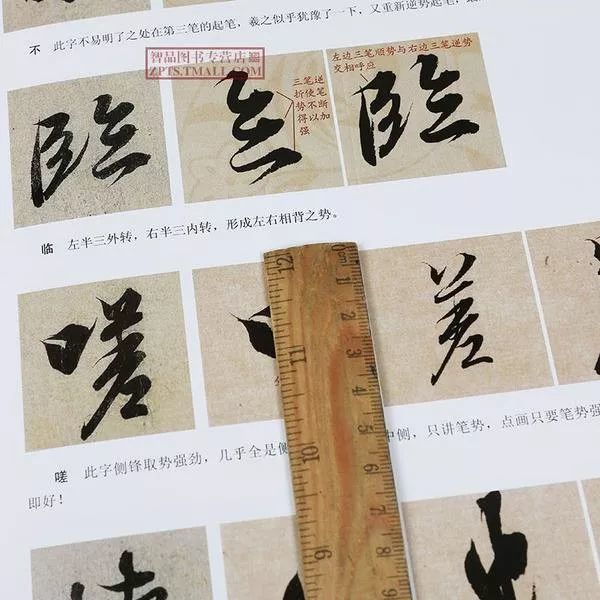 不 此字不易明了之处在第三笔的起笔，羲之似乎犹豫了一下，又重新逆势起笔，
智品图书专营店
ZPTS.TMALL.COM
三笔逆
折使笔
势不断
得以加
强
左边三笔顺势与右边三笔逆势
交相呼应
臨
臨
临 左半三外转，右半三内转，形成左右相背之势。
嗟
差
嗟 此字侧锋取势强劲，几乎全是侧
中侧，只讲笔势，点画只要笔势强
即好！
12 11 10 9
0 1 2 3 4 5 6 7 8 9